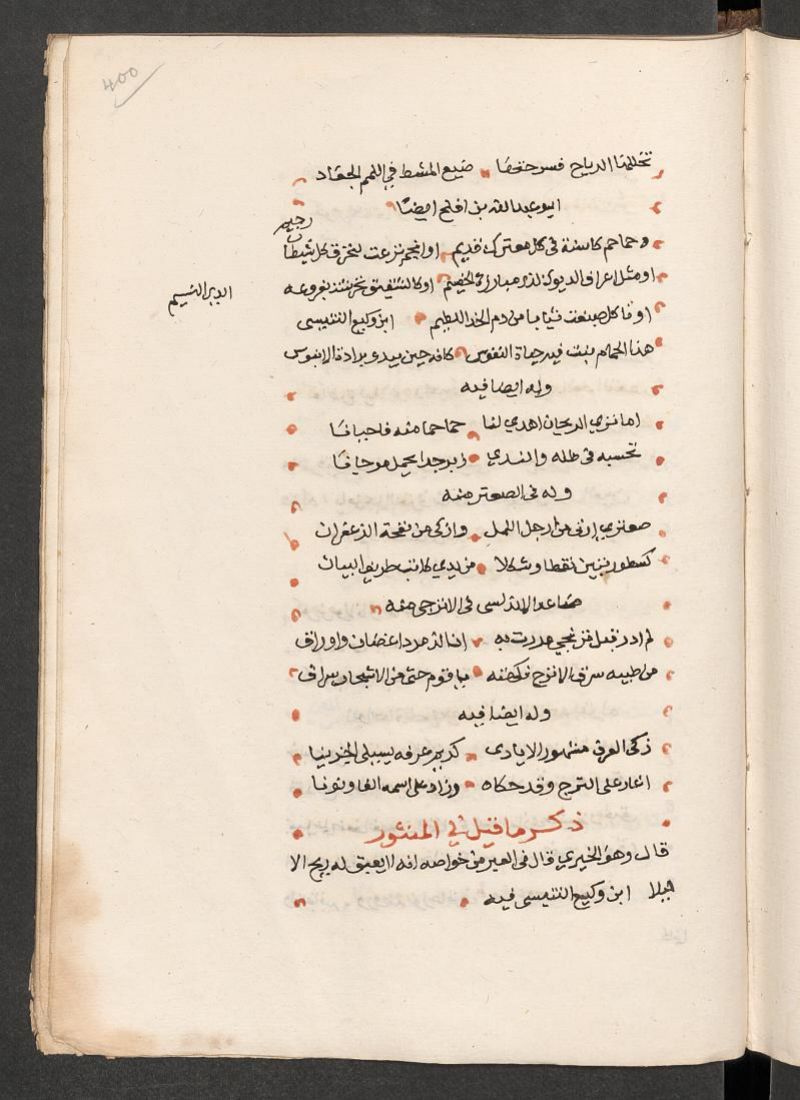 400
تخللها الرياح فسرحتها صنيع المشط في اللمم الجعاد
ابو عبد الله بن افلح ايضا
وحماحم كاسنة في كل معترك قديم او انجم نزعت لتخرق كل شيطان رجيم
او مثل اعراف الديوك لذو مبارزة الخصيم او كالشقيق بفروعه
ايدي النسيم
او ثاكل صبغت ثيابا من دم الخد اللطيم ابن وكيع التنيسي
هذا الحماحم بنت فيه حياة النفوس كانه حين يبدو برادة الابنوس
وله ايضا فيه
اما تري الريحان اهدي لنا حماحما منه فاحيانا
تحسبه في طله والندي زبرجدا يحمل مرجانا
وله في الصعتر منه
صعتري ادق من ارجل النمل واذكى من نفحة الزعفران
كسطور تبين نقطا وشكلا من يدي كاتب ظريف البيان
صاعد الاندلسي في الاترجي منه
لم ادر قبل مررت به ان الزمرد اغصان واوراق
من طيبه سرق الاترج نكهته يا قوم حتى من الاشجار سراق
وله ايضا فيه
ذكي العرف مشهور الايادي كريم عرفه يسلي الحزينا
اغار على الترنج وقد حكاه وزاد على اسمه الفا ونونا
ذكر ما قيل في المنثور
قال وهو الخيري قال في العير من خواصه انه لا يعبق له ريح الا
ليلا ابن وكيع التنيسي فيه